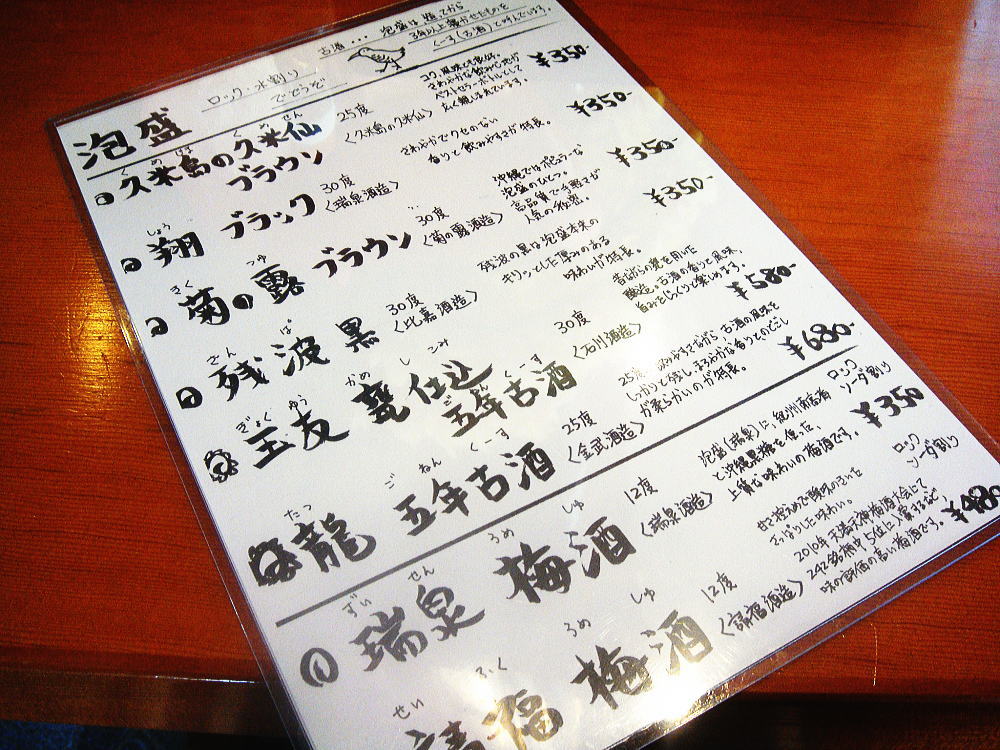 泡盛
ロック・水割り
でどうぞ
古酒... 泡盛は造ってから
3年以上寝かせたものを
くーす(古酒)と呼んでいます。
くめじま くめせん
久米島の久米仙
ブラウン
25度
〈久米島の久米仙〉
コク、風味とも良好。
さわやかな飲み心地が
ベストセラーボトルとして
広く親しまれています。
¥350-
しょう
翔 ブラック
30度
〈瑞泉酒造〉
さわやかでクセのない
香りと飲みやすさが特長。
¥350-
きく つゆ
菊の露 ブラウン
30度
〈菊の露酒造〉
沖縄ではポピュラーな
泡盛のひとつ。
高品質で手軽さが
人気の秘密。
¥350-
ざん ぱ
残波 黒
30度
〈比嘉酒造〉
残波の黒は泡盛本来の
キリッとした厚みのある
味わいが特長。
¥350-
ぎょくゆう かめ しこみ
玉友 甕仕込
ごねんくーす
五年古酒
30度
〈石川酒造〉
昔ながらの甕を用いた
醸造。古酒の香りと風味、
旨みをじっくりと楽しめます。
¥580-
たつ ごねん くーす
龍 五年古酒
25度
〈金武酒造〉
25度、飲みやすさながら、古酒の風味を
しっかりと残し、まろやかな香りとのどごし
が柔らかいのが特長。
¥680-
ずい せん うめ しゅ
瑞泉 梅酒
12度
〈瑞泉酒造〉
泡盛(瑞泉)に、紀州南高梅
と沖縄黒糖を使った、
上質な味わいの梅酒です。
ロック
ソーダ割り
¥350
せい ふく うめ しゅ
請福 梅酒
12度
〈請福酒造〉
甘さ控えめで酸味のきいた
さっぱりした味わい。
2010年天満天神梅酒大会にて
242銘柄中5位に入賞するなど、
味の評価の高い梅酒です。
ロック
ソーダ割り
¥480